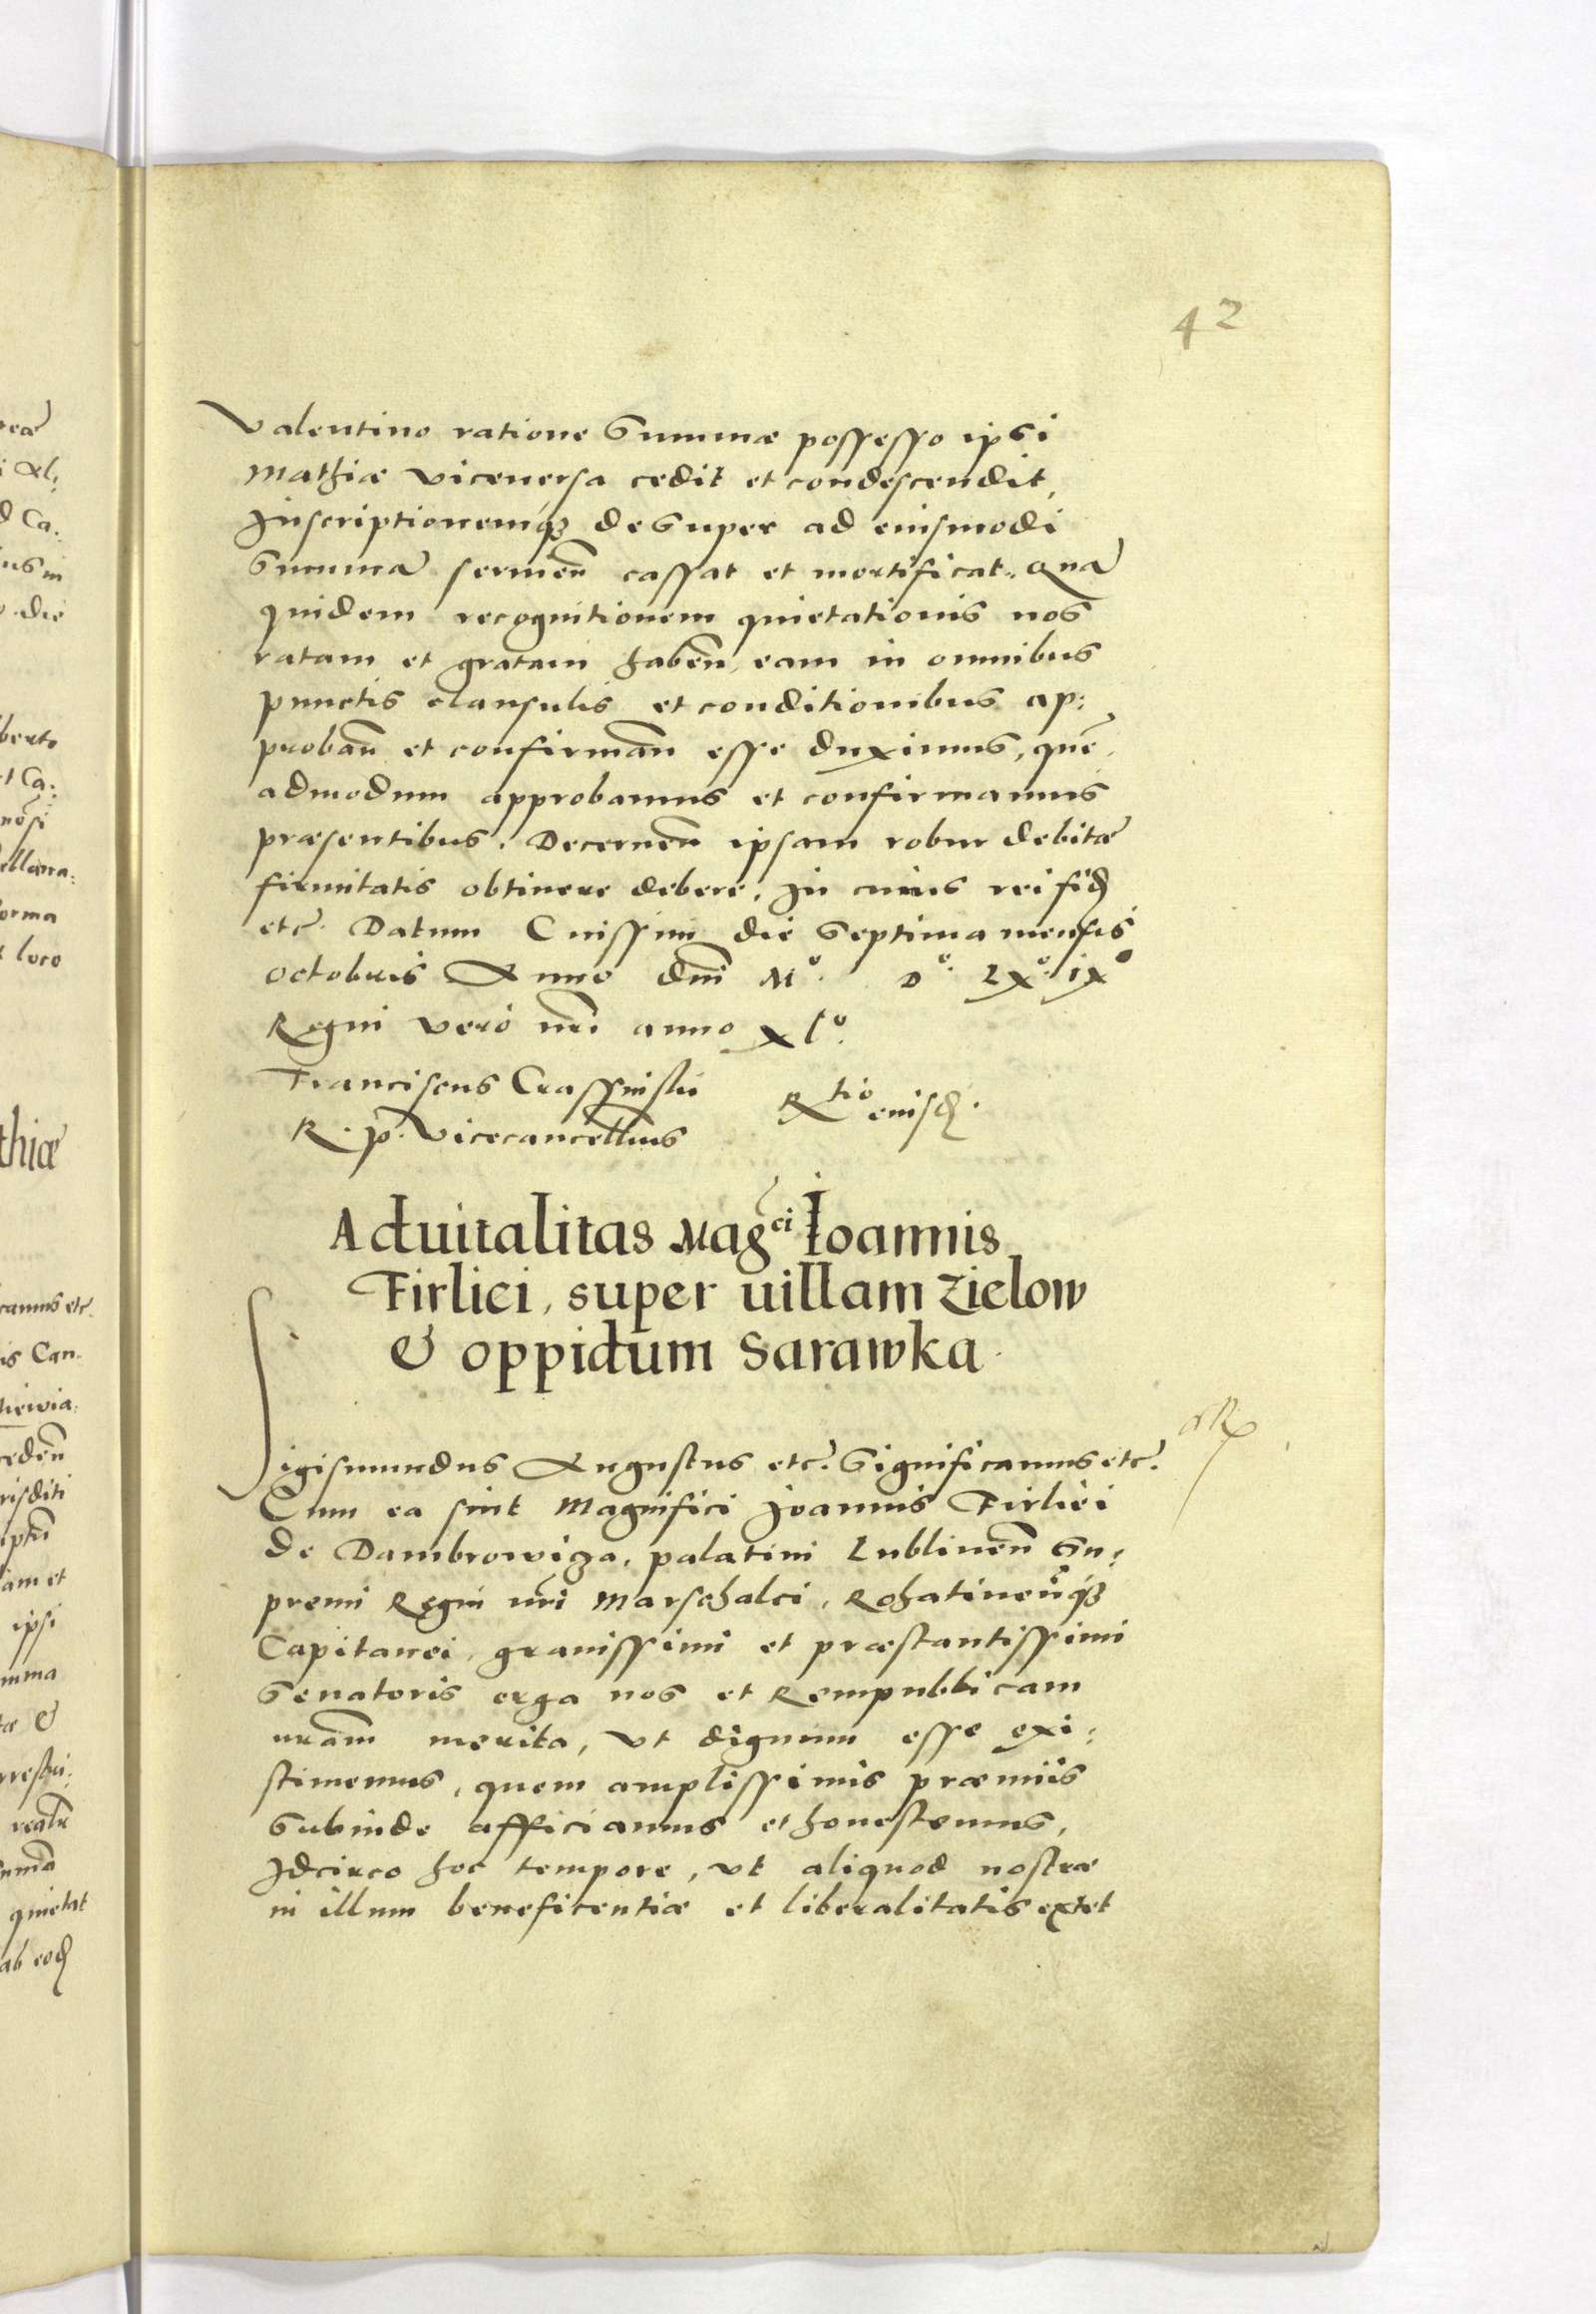 42
Valentino ratione Summæ possesso ipsi
Mathiæ viceuersa cedit et condescendit,
Inscriptionemq́ꝫ deSuper ad eiusmodi
Summā seruieñ cassat et mortificat. Quā
quidem recognitionem quietationis nos
ratam et gratam habeñ, eam in omnibus
punctis clausulis et conditionibus ap:
probañ et confirmañ esse duximus, quē
admodum approbamus et confirmamus
præsentibus. Decerneñ ipsam robur debitæ
firmitatis obtinere debere. In cuius rei fid̄
etc̄. Datum Cnissini die Septima mensis
Octobris Anno dñi Mº. Dº. LXº. IXº
Regni vero nr̄i anno XLº.
Franciscus Crassinski
R. P. Vicecancellrius
Rtio eiusd̄.
Aduitalitas Magci Ioannis
Firliei, super uillam Zielow
& oppidum Sarawka
Sigismundus Augustus etc̄. Significamus etc̄.
Cum ea sint Magnifici Joannis Firliei
de Dambrowiza, palatini Lublineñ Su:
premi Regni nr̄i Marschalci, Rohatineñq́ꝫ
Capitanei, grauissimi et præstantissimi
Senatoris erga nos et Rempubblicam
nrām merita, vt dignum esse exi:
stimemus, quem amplissimis præmiis
Subinde afficiamus et honestemus,
Idcirco hoc tempore, vt aliquod nostræ
in illum beneficentiæ et liberalitatis extet